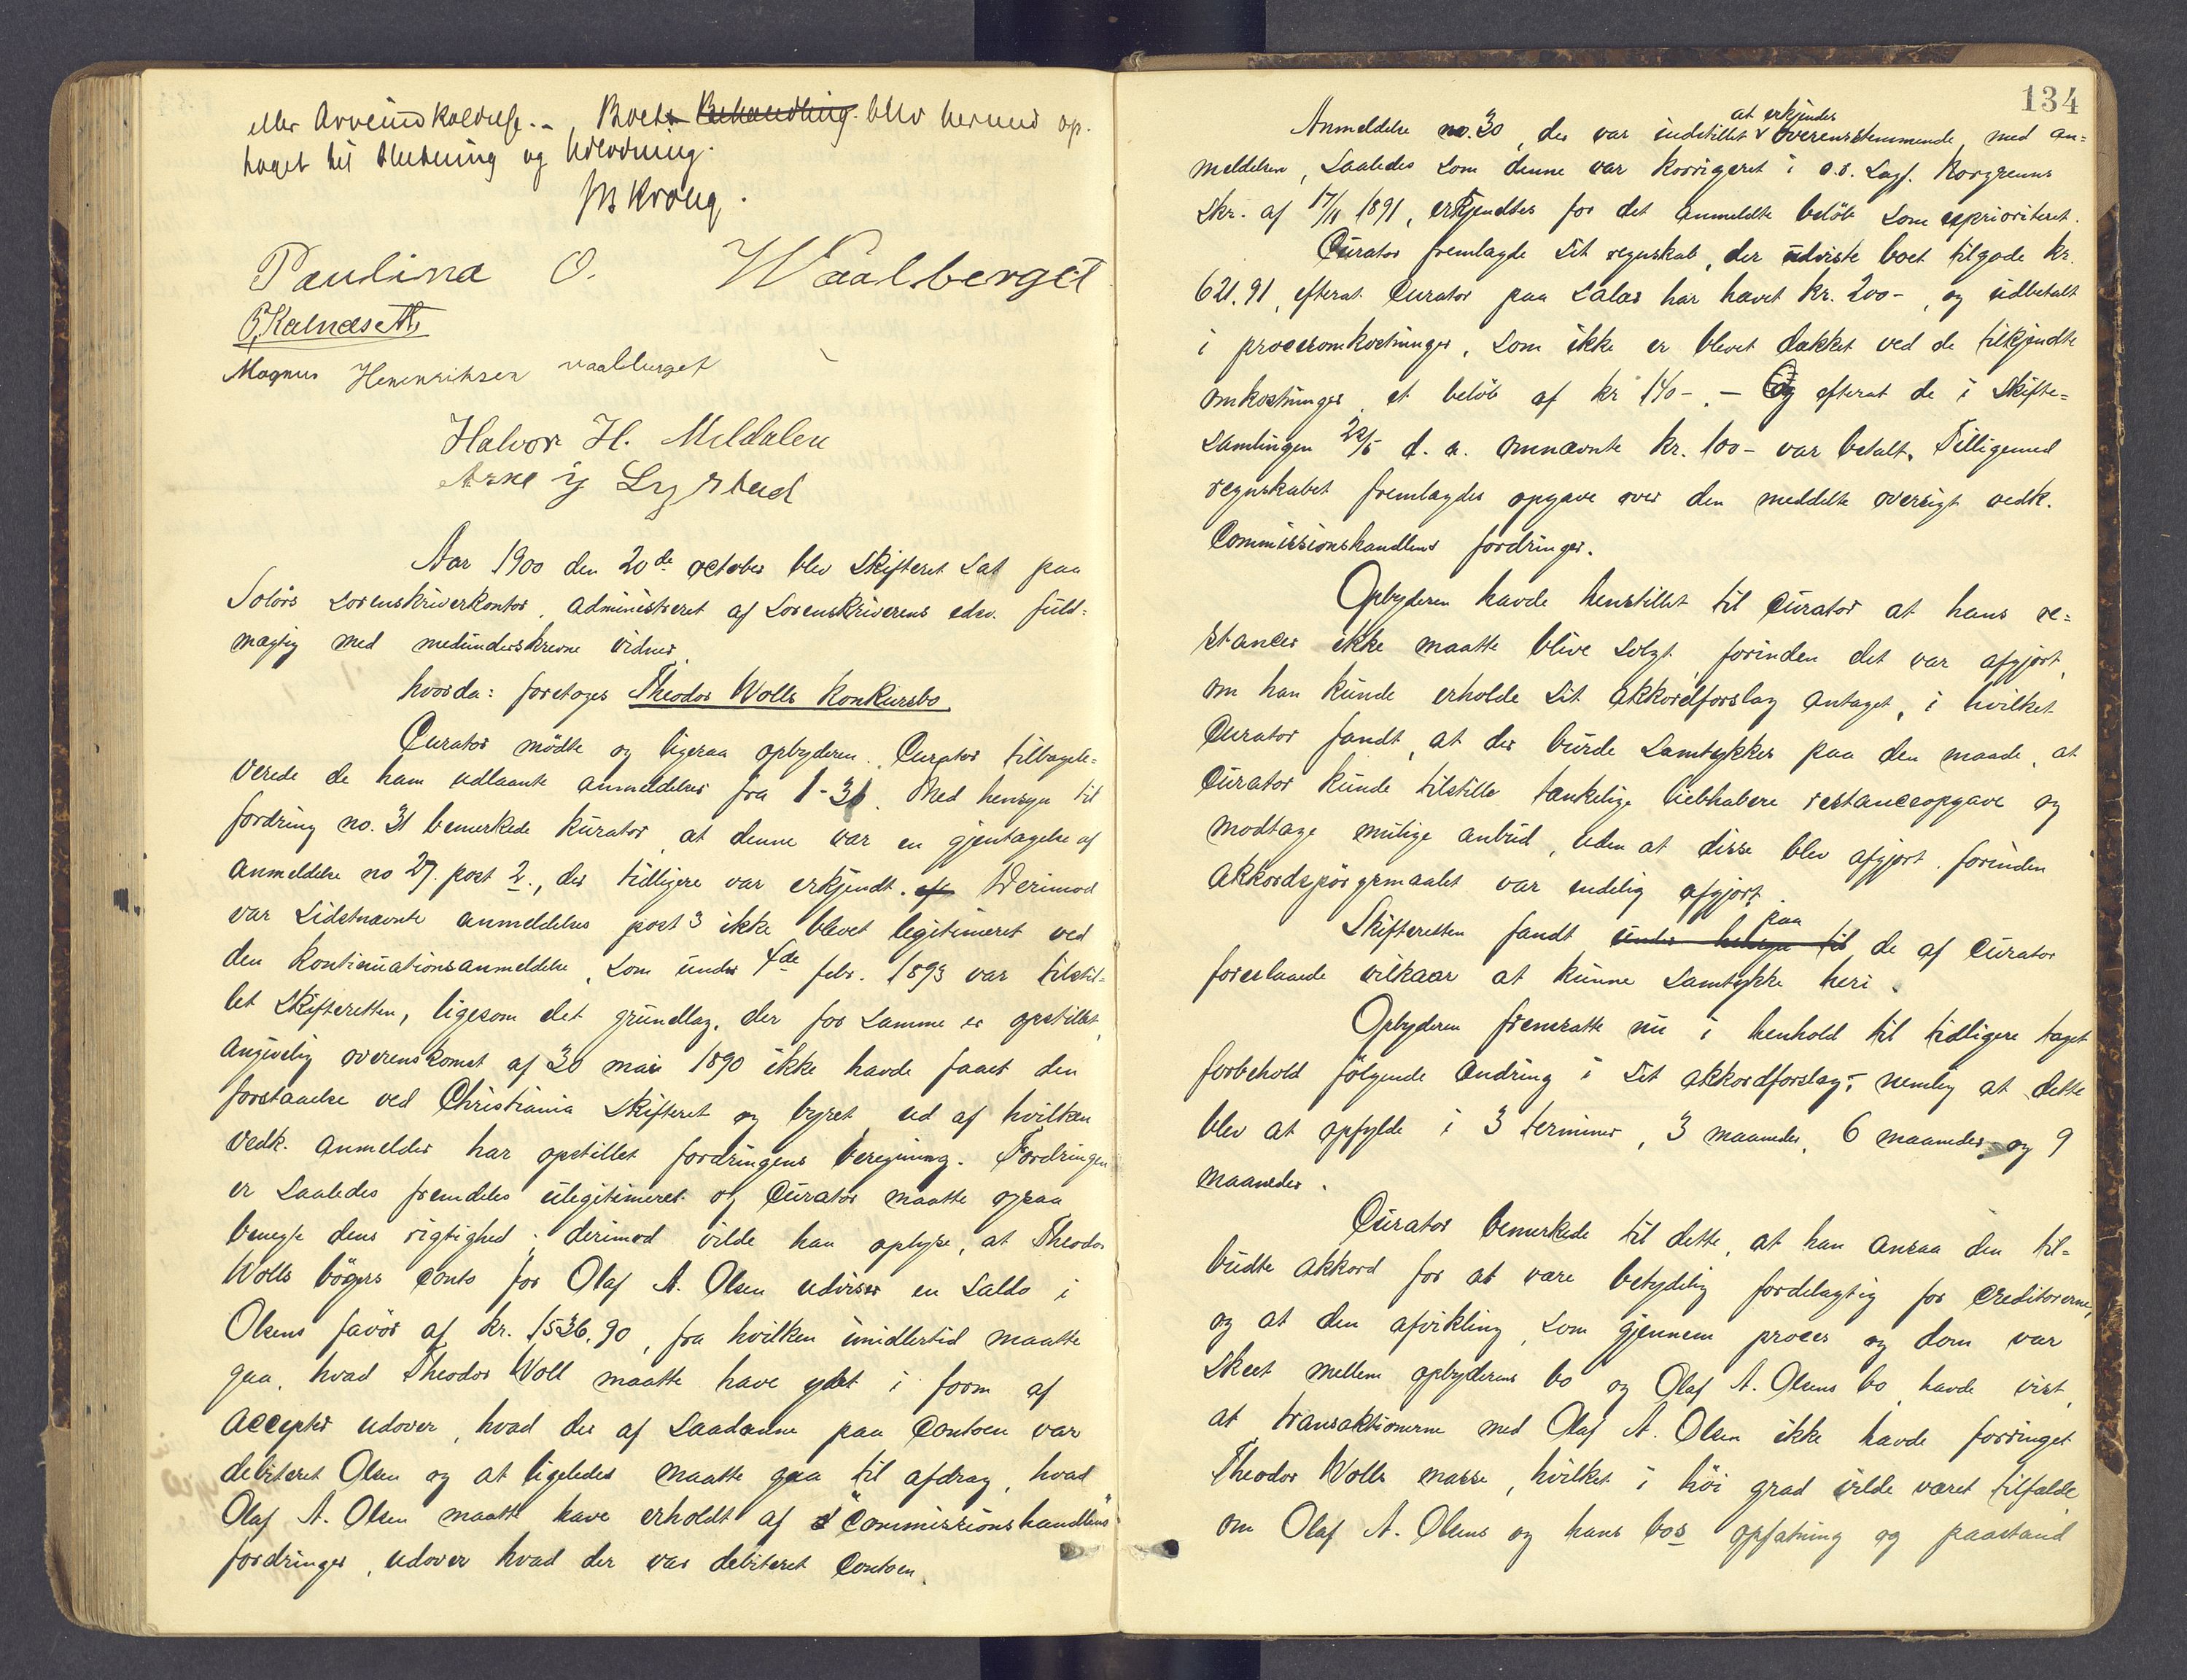 eller Arveindkaldelse. – Boets Behandling blev hermed op-
taget til Slutning og Udlodning.
Paulina O. Waalberget
Magnus Henenriksen vaalberget
Halvor H. Meldalen
Arne
Aar 1900 den 20de october blev Skifteret sat paa
Solørs Sorenskriverkontor, administreret af Sorenskriverens edsv. fuld-
mægtig med medunderskrevne vidner,
hvorda: foretoges Theodor Wolls Konkursbo.
Curator mødte og ligesaa opbyderen. Curator tilbagele-
verede de ham udlaante anmeldelser fra 1-31. Med hensyn til
fordring no. 31 bemerkede kurator, at denne var en gjentagelse af
anmeldelse no 27. post 2., der tidligere var erkjendt. Derimod
var sidstnævnte anmeldelses post 3 ikke blevet legitimeret ved
den kontinuationsanmeldelse, som under 4de febr. 1893 var tilstil-
let Skifteretten, ligesom det grundlag, der for samme er opstillet,
angivelig overenskomst af 30 mai 1890 ikke havde faaet den
forstaaelse ved Christiania Skifteret og byret, ud af hvilken
vedk. anmelder har opstillet fordringens beregning. Fordringen
er saaledes fremdeles ulegitimeret og Curator maatte ogsaa
benegte dens rigtighed; derimod vilde han oplyse, at Theodor
Wolls bøgers conto for Olaf A. Olsen udviser en Saldo i
Olsens favør af kr. 1536,90, fra hvilken imidlertid maatte
gaa, hvad Theodor Woll maatte have ydet i form af
accepter udover, hvad der af saadanne paa Contoen var
debiteret Olsen og at ligeledes maatte gaa til afdrag, hvad
Olaf A. Olsen maatte have erholdt af "Commissionshandlens"
fordringer, udover hvad der var debiteret Contoen.
134
Anmeldelse no. 30, der var indstillet at erkjendes overensstemmende med an-
meldelsen, saaledes som denne var korrigeret i o.r. sagf. Korgrenns
Skr. af 17/11 1891, erkjendtes for det anmeldte beløb som uprioriteret.
Curator fremlagde sit regnskab, der udviste boet tilgode kr.
621.91, efterat Curator paa salær har hævet kr. 200-, og udbetalt
i procesomkostninger, som ikke er blevet dækket ved de tilkjendte
omkostninger, et beløb af kr 140-. – Og efterat de i Skifte-
samlingen 22/5 d. a. omnævnte kr. 100- var betalt. Tilligemed
regnskabet fremlagdes opgave over den meddelte oversigt vedk.
Commissionshandlens fordringer.
Opbyderen havde henstillet til Curator at hans re-
stancer ikke maatte blive solgt, forinden det var afgjort,
om han kunde erholde sit akkordforslag antaget, i hvilket
Curator fandt, at der burde samtykkes paa den maade, at
Curator kunde tilstille tænkelige liebhabere restanceopgave og
modtage mulige anbud, uden at disse blev afgjort, forinden
akkordspørgsmaalet var endelig afgjort.
Skifteretten fandt under hensyn til paa de af Curator
foreslaaede vilkaar at kunne samtykke heri.
Opbyderen fremsatte nu i henhold til tidligere taget
forbehold følgende ændring i sit akkordforslag, nemlig at dette
blev at opfylde i 3 terminer, 3 maaneder, 6 maaneder og 9
maaneder.
Curator bemerkede til dette, at han ansaa den til-
budte akkord for at være betydelig fordelagtig for creditorerne,
og at den afvikling, som gjennem proces og dom var
skeet mellem opbyderens bo og Olaf A. Olsens bo, havde vist,
at transaktionerne med Olaf A. Olsen ikke havde forringet
Theodor Wolls masse, hvilket i høi grad vilde været tilfælde,
om Olaf A. Olsens og hans bos opfatning og paastand